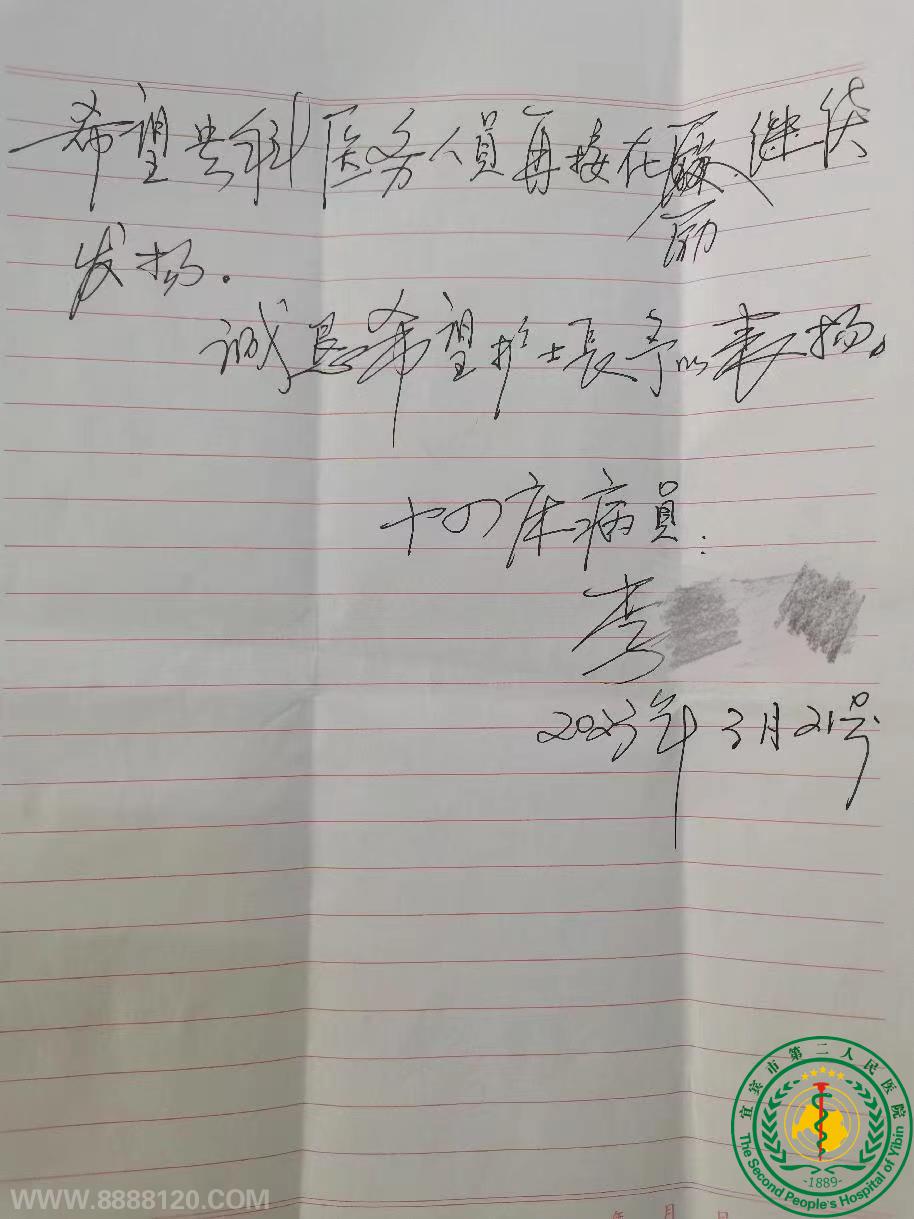 希望贵科医务人員再接在励.继续
发扬.
诚恳希望护士長予以表扬。
十四床病員:
李
2023年3月21号
宜宾市第二人民医院
-1889-
The Second People's Hospital of Yibin
WWW.8888120.COM
年 月 日